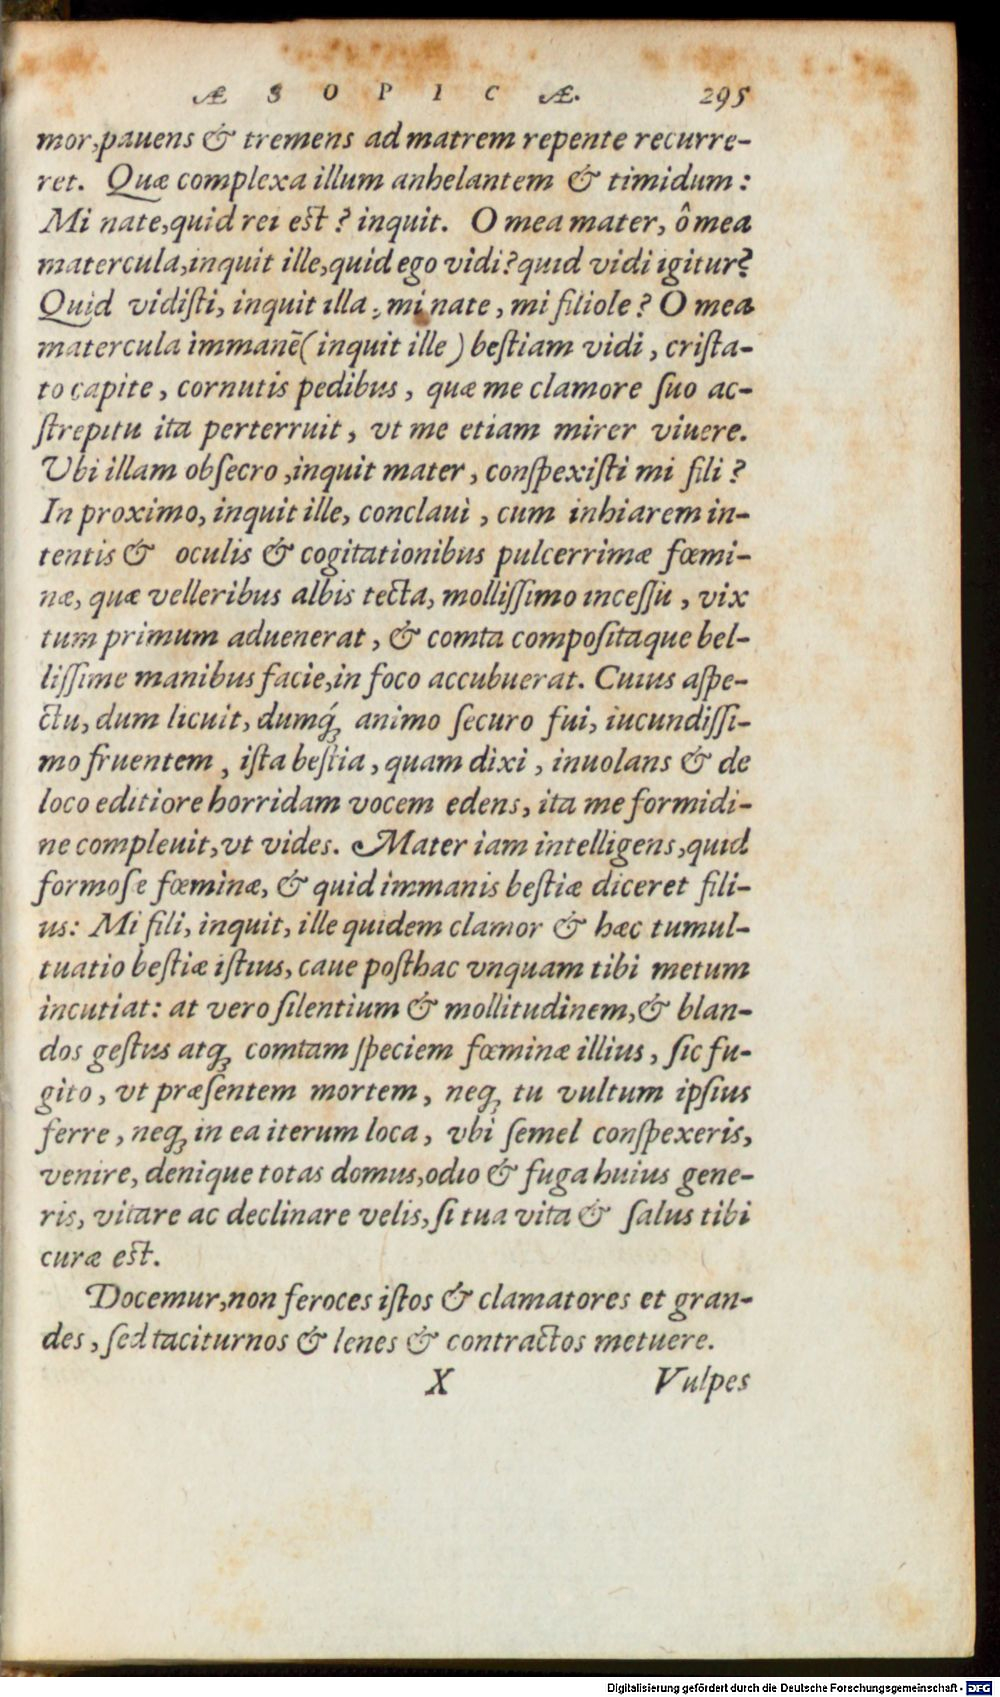 Æ S O P I C Æ. 295
mor, pauens & tremens ad matrem repente recurre-
ret. Quæ complexa illum anhelantem & timidum:
Mi nate, quid rei est? inquit. O mea mater, ô mea
matercula, inquit ille, quid ego vidi? quid vidi igitur?
Quid vidiſti, inquit illa, mi nate, mi filiole? O mea
matercula immanē (inquit ille) beſtiam vidi, criſta-
to capite, cornutis pedibus, quæ me clamore ſuo ac
ſtrepitu ita perterruit, vt me etiam mirer viuere.
Vbi illam obſecro, inquit mater, conſpexiſti mi fili?
In proximo, inquit ille, conclaui, cum inhiarem in-
tentis & oculis & cogitationibus pulcerrimæ fœmi-
næ, quæ velleribus albis tecta, molliſſimo inceſſu, vix
tum primum aduenerat, & comta compoſitaque bel-
liſſime manibus facie, in foco accubuerat. Cuius aſpe-
ctu, dum licuit, dumq́ꝫ animo ſecuro fui, iucundiſſi-
mo fruentem, iſta beſtia, quam dixi, inuolans & de
loco editiore horridam vocem edens, ita me formidi-
ne compleuit, vt vides. Mater iam intelligens, quid
formoſe fœminæ, & quid immanis beſtiæ diceret fili-
us: Mi fili, inquit, ille quidem clamor & hæc tumul-
tuatio beſtiæ iſtius, caue poſthac vnquam tibi metum
incutiat: at vero ſilentium & mollitudinem, & blan-
dos geſtus atqꝫ comtam ſpeciem fœminæ illius, ſic fu-
gito, vt præſentem mortem, neqꝫ tu vultum ipſius
ferre, neqꝫ in ea iterum loca, vbi ſemel conſpexeris,
venire, denique totas domus, odio & fuga huius gene-
ris, vitare ac declinare velis, ſi tua vita & ſalus tibi
curæ est.
Docemur, non feroces iſtos & clamatores et gran-
des, ſed taciturnos & lenes & contractos metuere.
X Vulpes
Digitalisierung gefördert durch die Deutsche Forschungsgemeinschaft - DFG